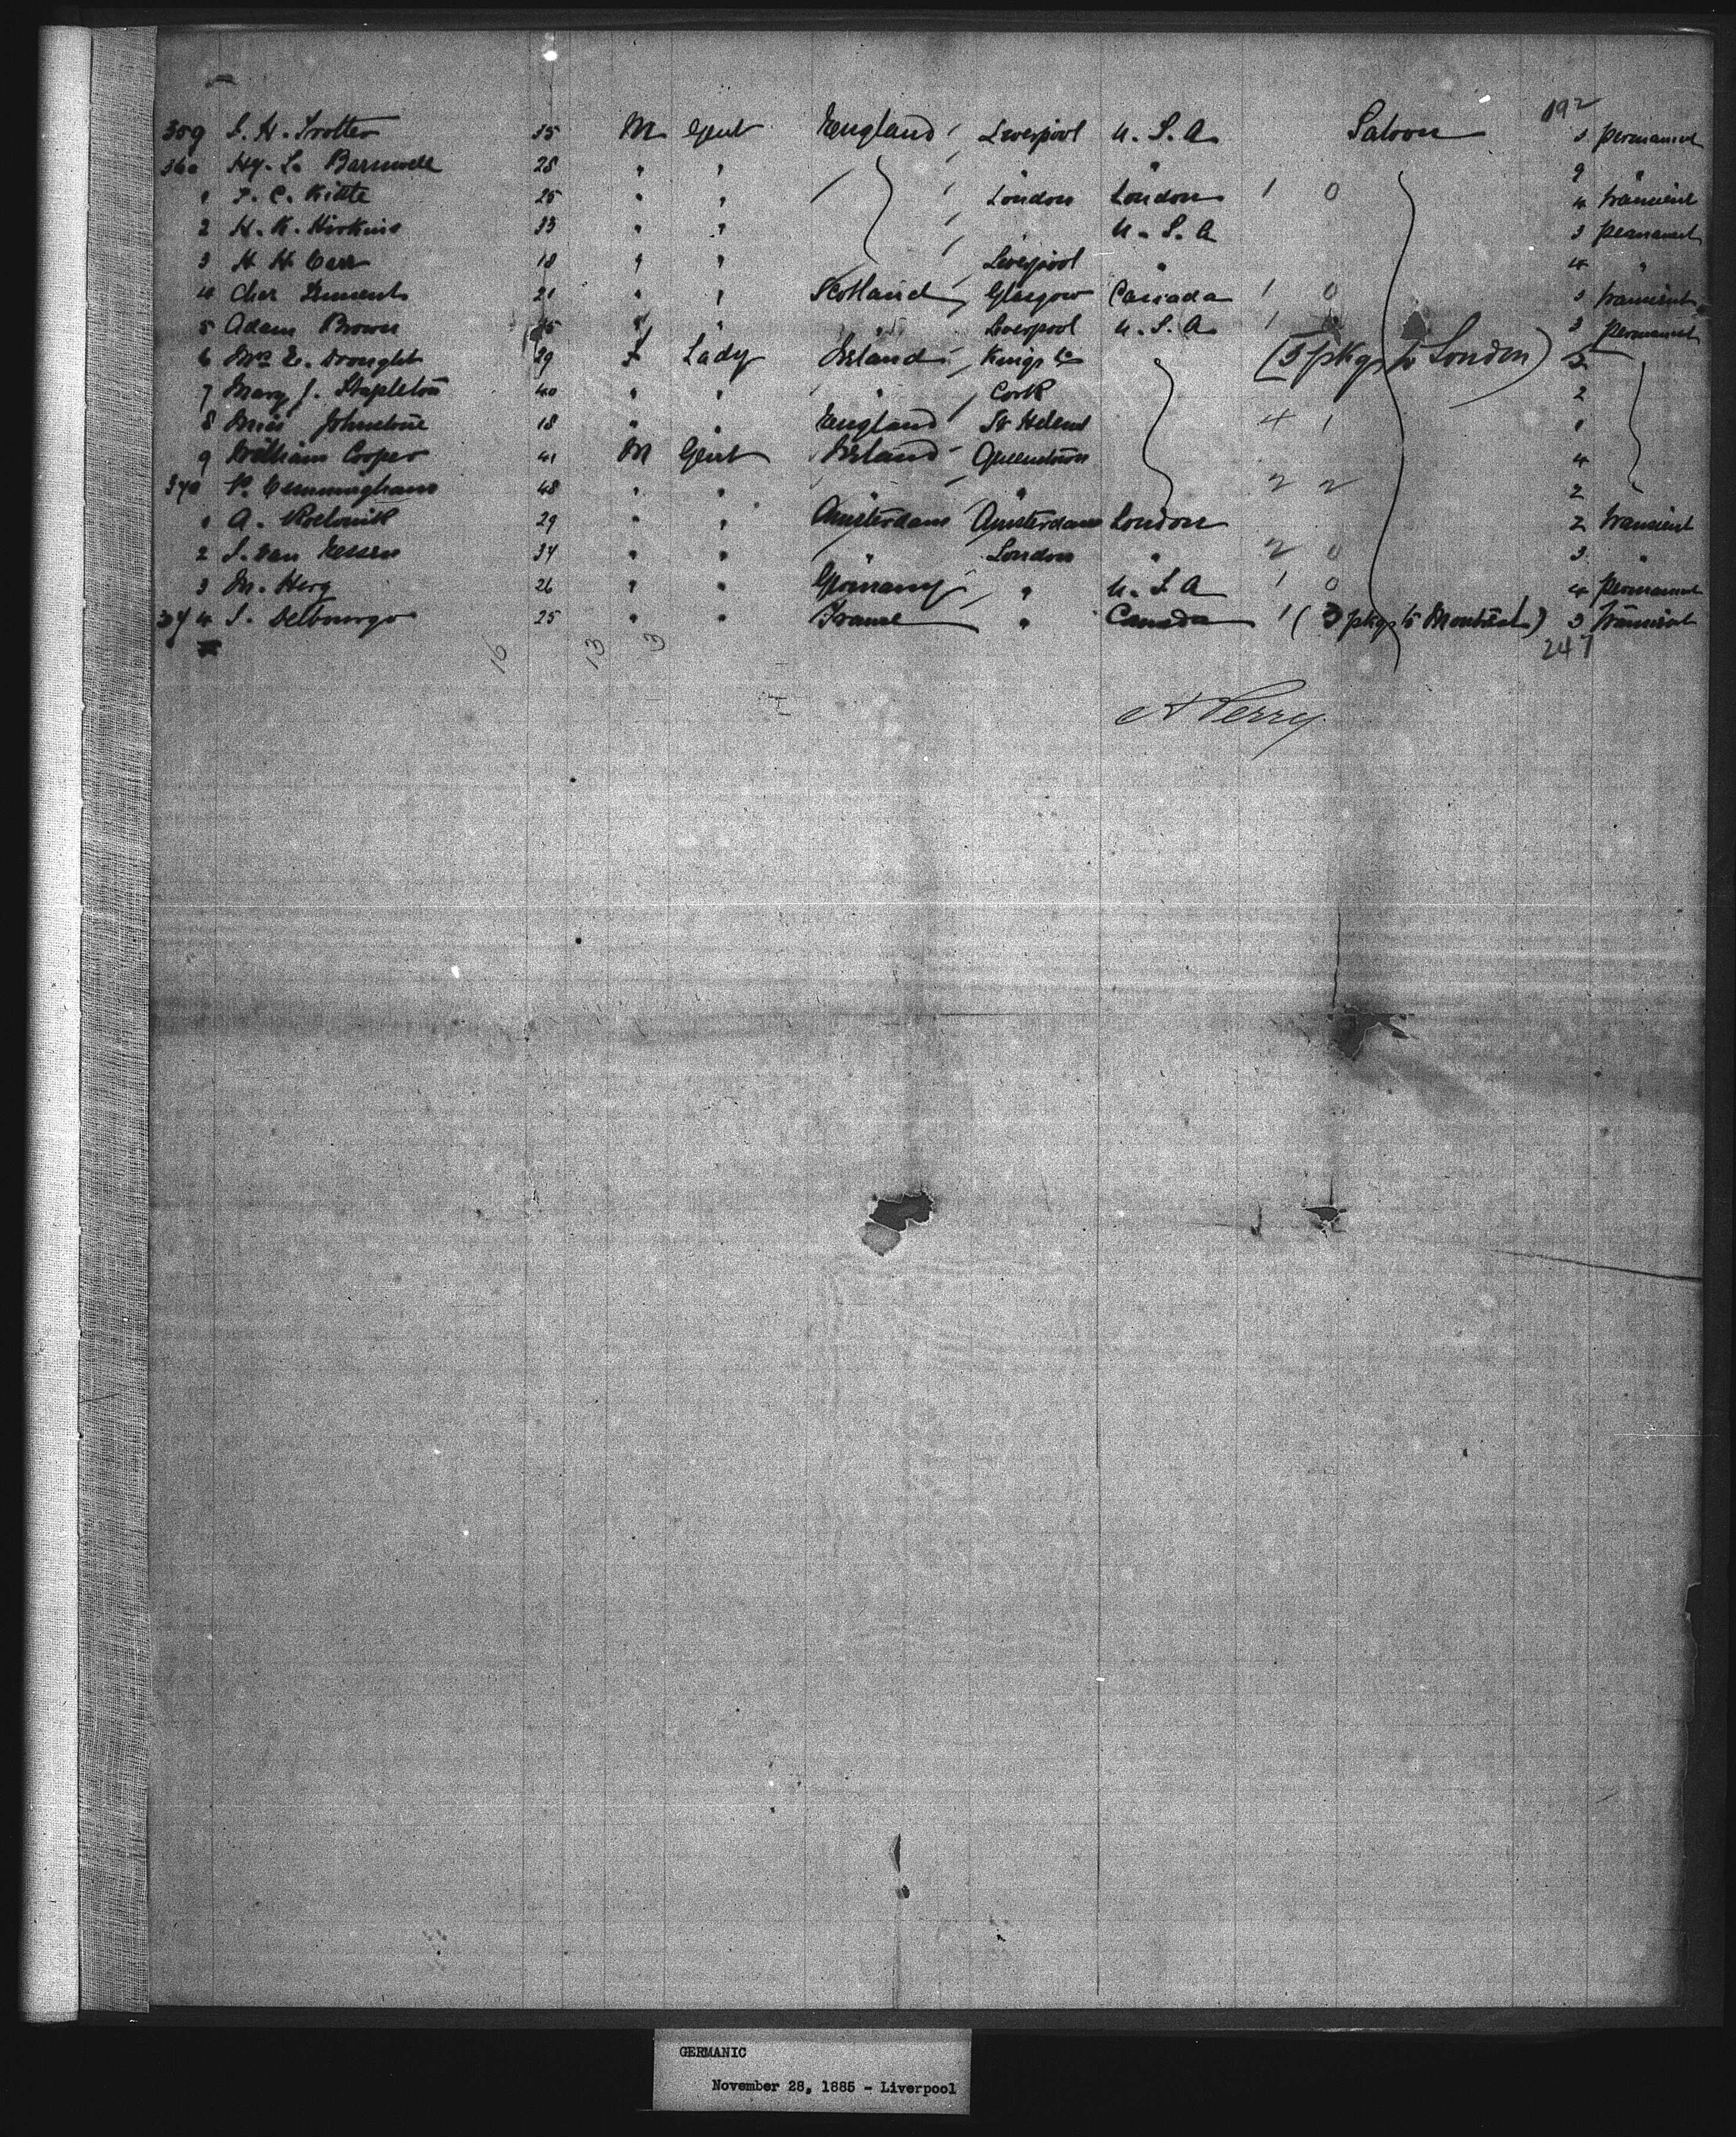 192
359 S. H. Trotter 35 M Gent England Liverpool U. S. A Saloon 3 permanent
360 Hy. L. Barnwell 28 " " " " 9 "
1 25 " " London London 1 0 4 transient
2 33 " " " U. S. A 3 permanent
3 H H Carr 18 " " Liverpool " 4 "
4 Chas 21 " " Scotland Glasgow Canada 1 0 3 transient
5 Adam Brown " " " Liverpool U. S. A 1 3 permanent
6 Mrs E. Drought 29 F Lady Ireland Kings Co (5 pkgs to London) 2
7 Mary J. Stapleton 40 " " " Cork 2
8 Miss Johnstone 18 " " England St Helens 4 1 1
9 William Cooper 41 M Gent Ireland Queenstown 4
370 P. Cunningham 48 " " " " 2 2 2
1 A. 29 " " Amsterdam Amsterdam London 2 transient
2 S. Van Jessen 34 " " " London " 2 0 3 "
3 M. Herg 26 " " Germany " U. S. A 1 0 4 permanent
374 S. Delburgo 25 " " France " Canada 1 (3 pkgs to Montreal) 3 transient
16 13 3 247
A Perry
GERMANIC
November 28, 1885 - Liverpool